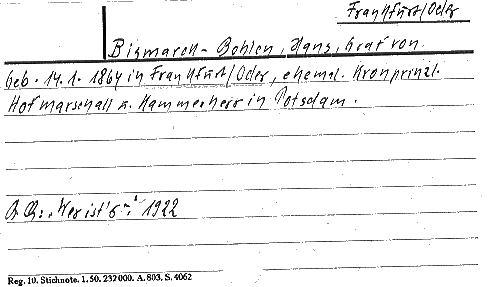 Frankfurt/Oder
Bismarck-Bohlen, Hans, Graf von.
Geb. 14.1. 1864 in Frankfurt/Oder, ehemal. Kronprinzl.
Hofmarschall u. Kammerherr in Potsdam.
"Wer ist's" 1922
Reg. 10. Stichnote. 1. 50. 232000. A. 803. S. 4062